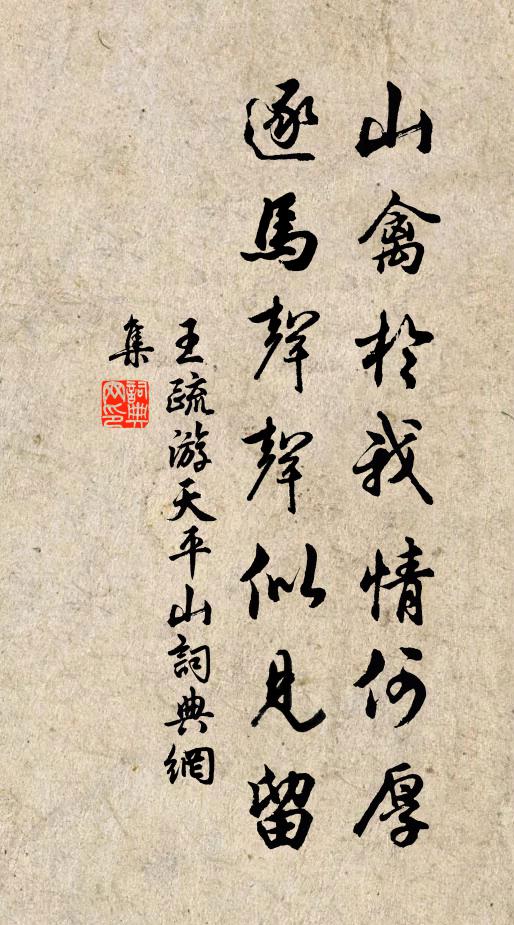 山禽於我情何厚
逐馬聲聲似見留
王疏游天平山詞典網
集
詞典
网印